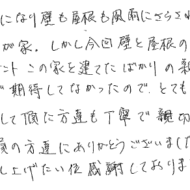 になり壁も屋根も風雨にさらされ
が家。しかし今回壁と屋根の
ント この家を建てたばかりの新
で期待してなかったので、とても
して頂いた方達も丁寧で親切
員の方達にありがとうございました
し上げたい位感謝しておりま